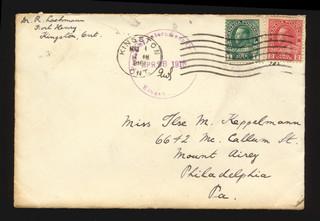 Mr. R. Lochmann
Fort Henry
Kingston Ont.
KINGSTON
ONT.
Miss Ilse M. Keppelmann
6642 Mc. Callum St.
Mount Airey
Philadelphia
Pa.